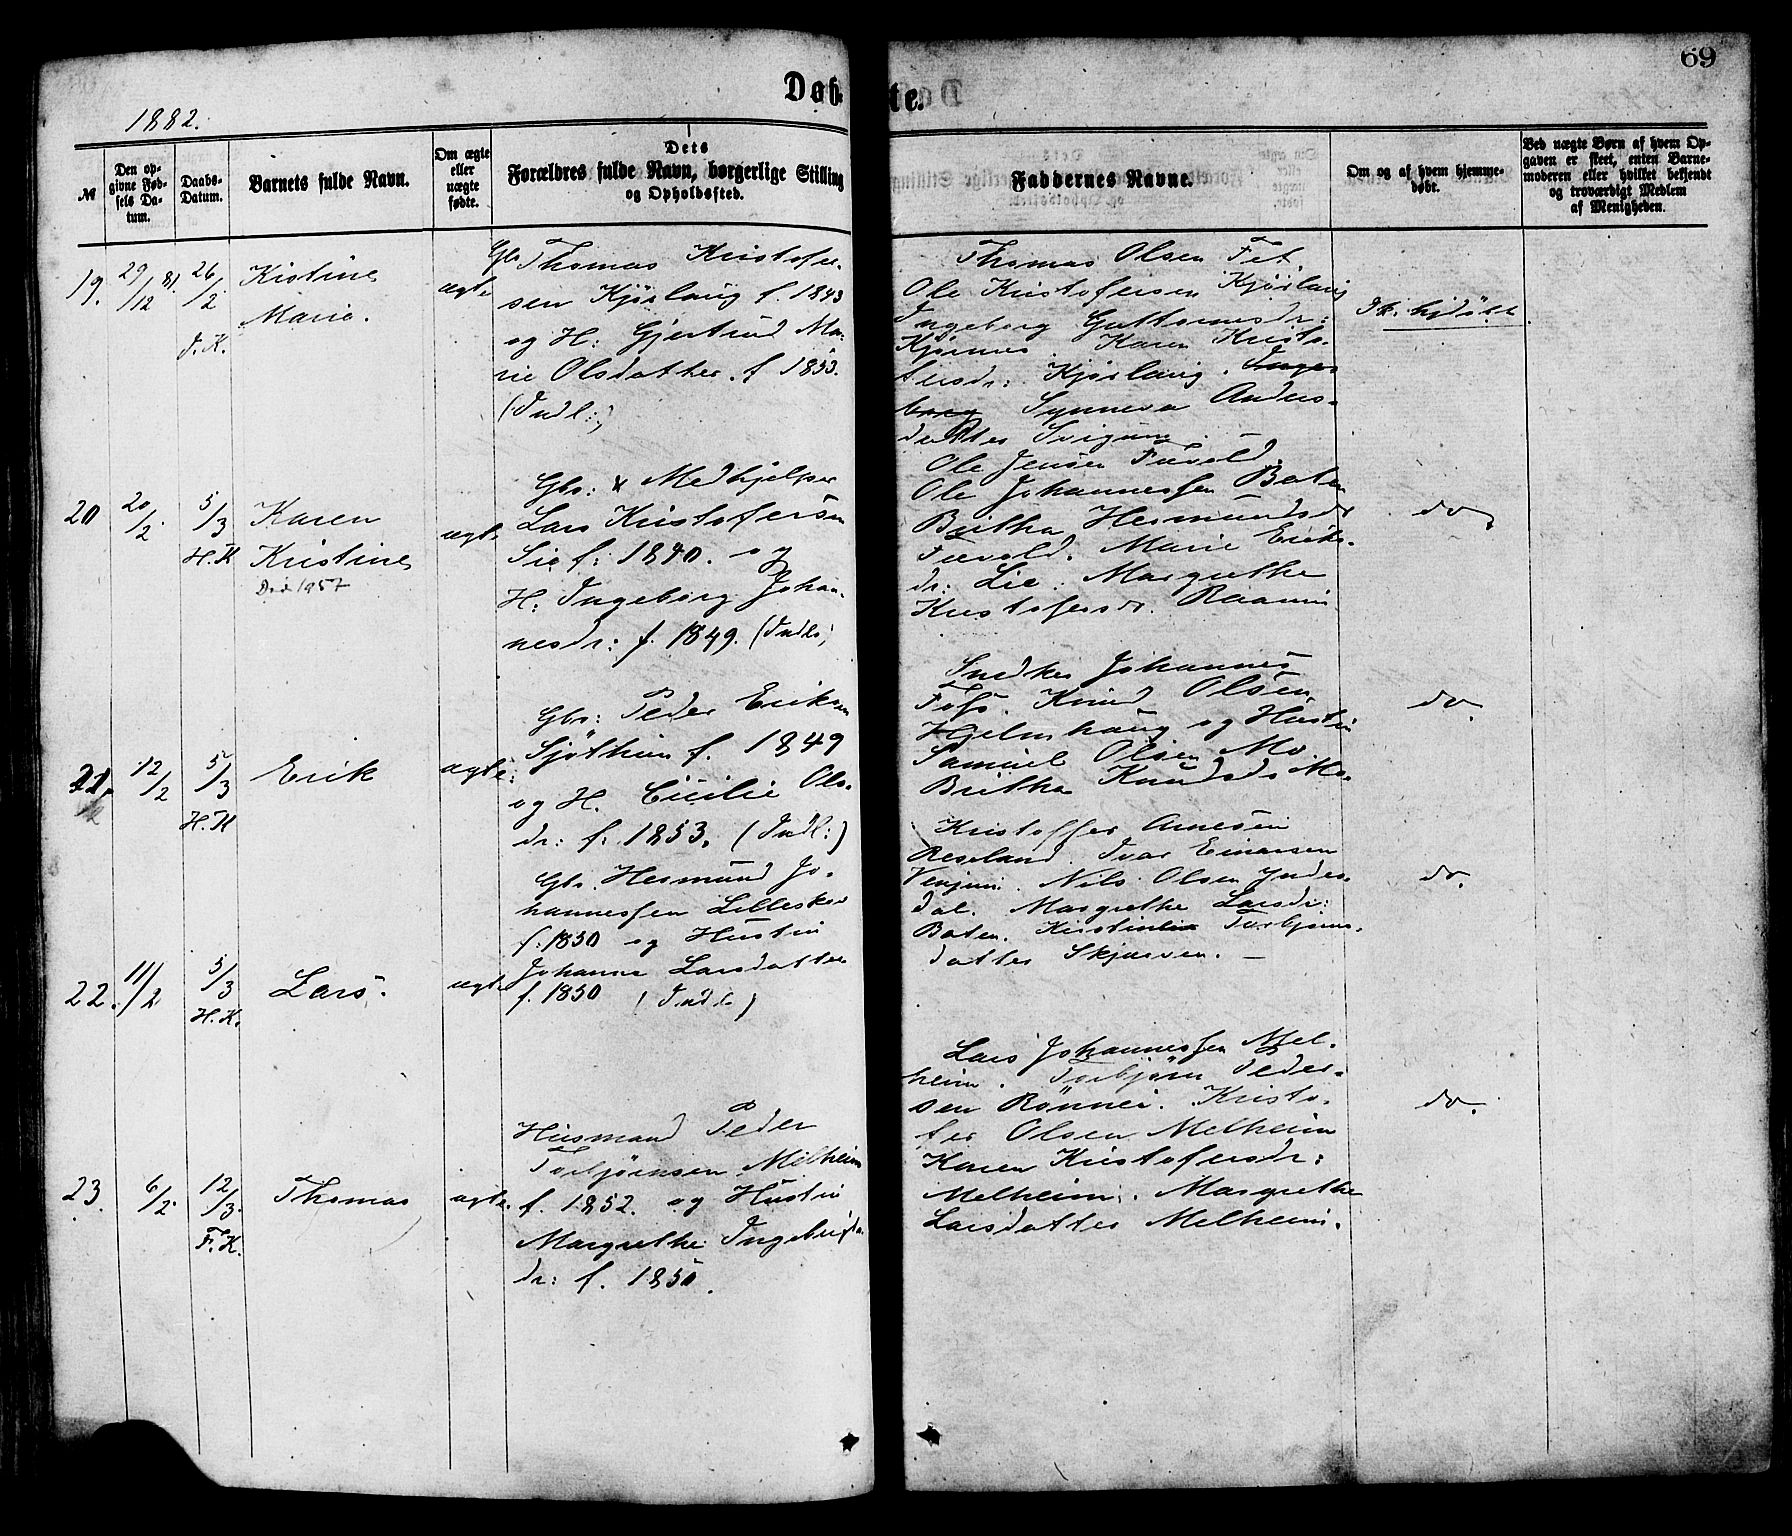 69
Døb-
te.
1882.
№
Den opgivne Fødsels Datum.
Daabs-Datum.
Barnets fulde Navn.
Om ægte eller uægte fødte.
Dets Forældres fulde Navn, borgerlige Stilling og Opholdssted.
Faddernes Navne.
Om og af hvem hjemmedøbt.
Ved uægte Børn af hvem Opgaven er skeet, enten Barnemoderen eller hvilket bekjendt og troværdigt Medlem af Menigheden.
19.
29/12 81.
26/2
J. K.
Kistine
Marie.
ægte
Gbr Thomas Kristofer-
sen Kjørlaug f. 1843
og H: Gjertrud Ma-
rie Olsdatter. f 1853.
(Indl:)
Thomas Olsen Fet
Ole Kristofersen Kjørlaug
Ingeborg Guttormsdr:
Kjørnes. Karen Kristo-
fersdr: Kjørlaug. Inge-
borg Synneva Anders-
datter Svigum. —
Ik. hjdöbt
20
20/2.
5/3
H. K
Karen
Kristine
Död 1957
ægte
Gbr: & Medhjelper
Lars Kristofersen
Lie f: 1840. og
H. Ingeborg Johan-
nesdr: f. 1849. (Indl:)
Ole Jensen
Ole Johannessen Baten
Britha Hermundsdr
Marie Eriks-
dr: Lie. Margrethe
Kristofersdr.
do.
21.
12/2
5/3
H. K
Erik
ægte:
Gbr: Peder Eriksen
Sjøthun f. 1849
og H. Cicilie Ols-
dr: f. 1853. (Indl:)
Snedker Johannes
Fofs. Knud Olsen
Hjelmhaug og Hustru
Samuel Olsen Mo.
Britha Knudsdr Mo.
do.
22.
11/2
5/3
H. K.
Lars.
ægte
Gbr. Hermund Jo-
hannessen Lilleskor
f: 1850 og Hustru
Johanne Larsdatter
f. 1850 (Indl.)
Kristoffer Arnesen
Reseland. Ivar Einarsen
Venjum. Nils Olsen Yndes-
dal. Margrethe Larsdr:
Baten. Kristine Torbjørns-
datter Skjærven. —
do.
23.
6/2.
12/3.
F. K.
Thomas
ægte.
Husmand Peder
Torbjørnsen Melheim
f. 1852. og Hustru
Margrethe Ingebrigts-
dr: f. 1850.
Lars Johannessen Mel-
heim. Torbjørn Peder-
sen Rönnei. Kristo-
fer Olsen Melheim
Karen Kristofersdr:
Melheim. Margrethe
Larsdatter Melheim.
do.